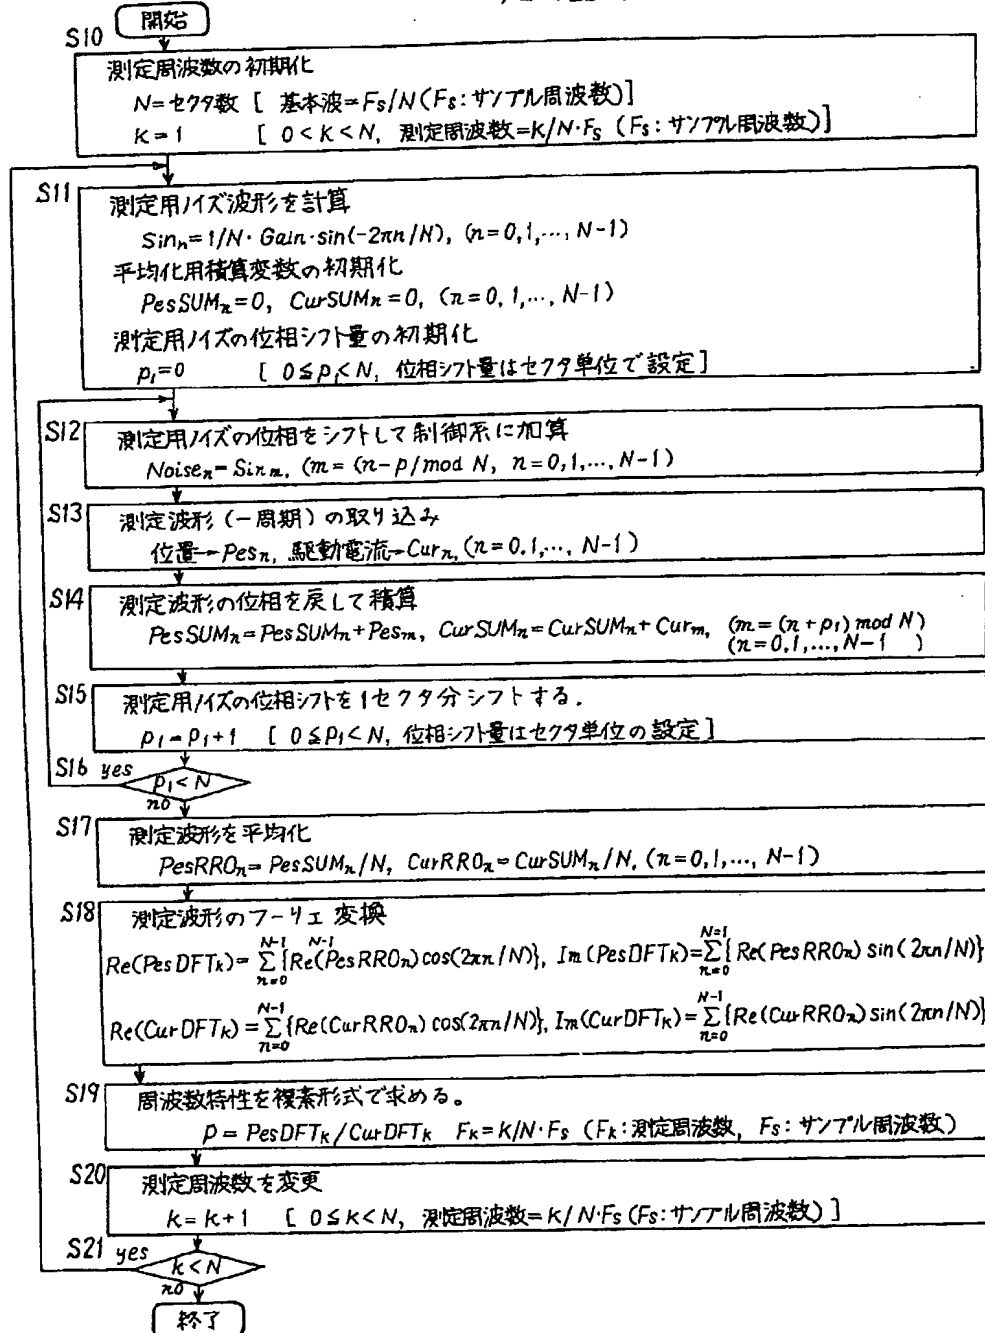 開始
S10
測定周波数の初期化
N=セクタ数 [ 基本波=Fs/N(Fs:サンプル周波数)]
K=1 [ 0<K<N, 測定周波数=K/N·Fs (Fs:サンプル周波数)]
S11
測定用ノイズ波形を計算
Sinn=1/N·Gain·sin(-2πn/N), (n=0,1,..., N-1)
平均化用積算変数の初期化
PesSUMn=0, CurSUMn=0, (n=0,1,..., N-1)
測定用ノイズの位相シフト量の初期化
p1=0 [ 0≦p1<N, 位相シフト量はセクタ単位で設定]
S12
測定用ノイズの位相をシフトして制御系に加算
Noisen=Sinm, (m=(n-p/mod N, n=0,1,..., N-1)
S13
測定波形(一周期)の取り込み
位置→Pesn, 駆動電流→Curn, (n=0.1,..., N-1)
S14
測定波形の位相を戻して積算
PesSUMn=PesSUMn+Pesm, CurSUMn=CurSUMn+Curm, (m=(n+p1)mod N)
(n=0,1,...,N-1 )
S15
測定用ノイズの位相シフトを1セクタ分シフトする.
p1=p1+1 [ 0≦p1<N, 位相シフト量はセクタ単位の設定]
S16 yes
p1<N
no
S17
測定波形を平均化
PesRROn=PesSUMn/N, CurRROn=CurSUMn/N, (n=0,1,..., N-1)
S18
測定波形のフーリエ変換
Re(PesDFTK)=N-1Σn=0{Re(N-1PesRROn)cos(2πn/N)}, Im(PesDFTK)=N=1Σn=0{Re(PesRROn)sin(2πn/N)}
Re(CurDFTK)=N-1Σn=0{Re(CurRROn)cos(2πn/N)}, Im(CurDFTK)=N-1Σn=0{Re(CurRROn)sin(2πn/N)}
S19
周波数特性を複素形式で求める。
P=PesDFTK/CurDFTK FK=K/N·Fs (Fk:測定周波数, Fs:サンプル周波数)
S20
測定周波数を変更
K=K+1 [ 0≦K<N, 測定周波数=K/N·Fs(Fs:サンプル周波数)]
S21 yes
k<N
no
終了